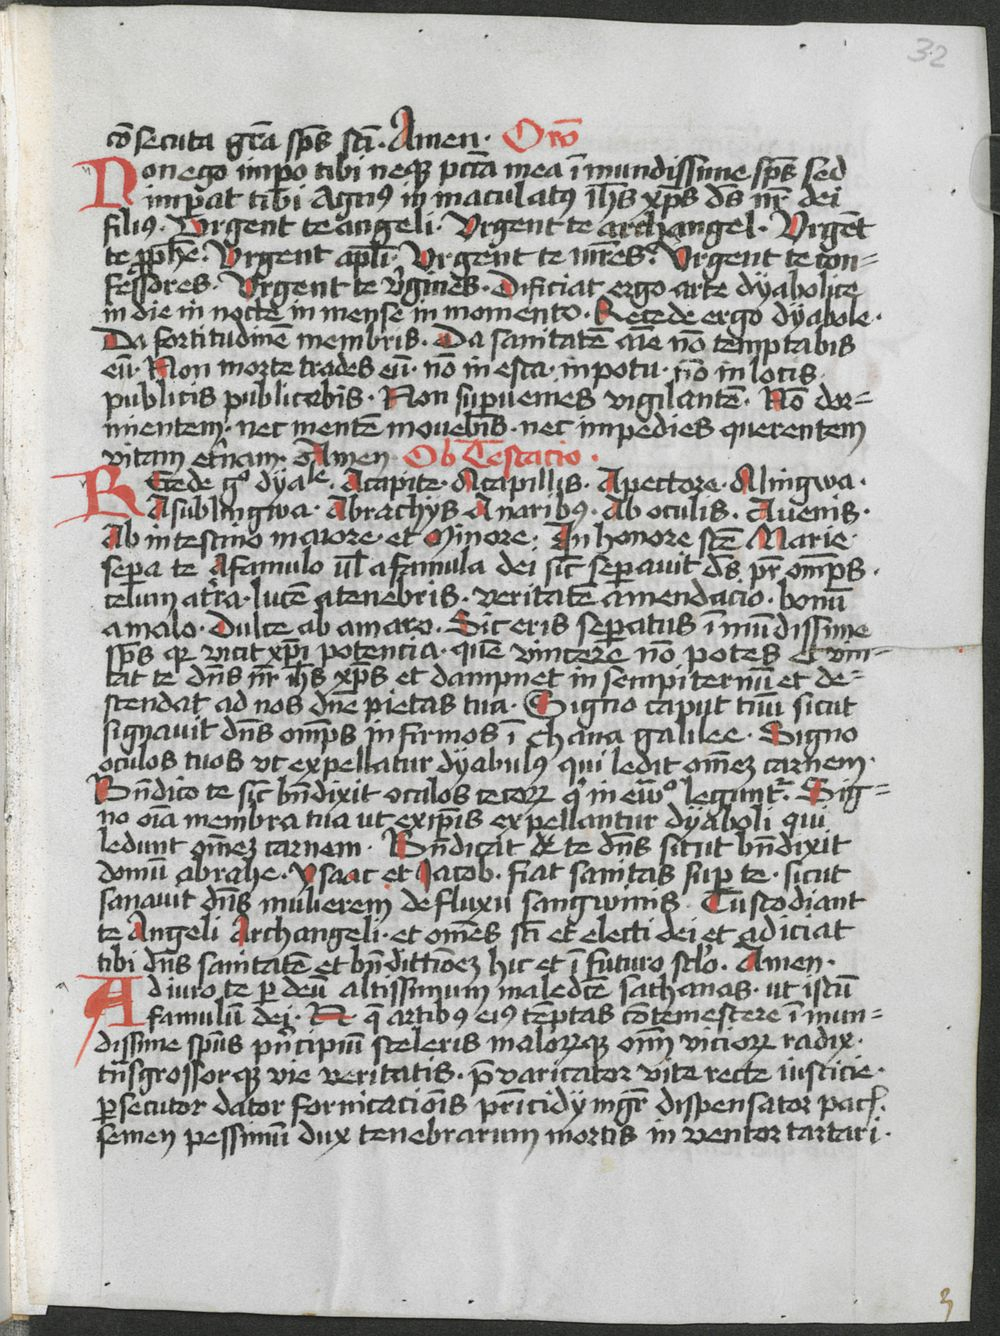 32
cōsecuta grā sps scī. Amen. Oro
Non ego impo tibi neqꝫ pctā mea īmundissime sps sed
imperat tibi Agnꝰ inmaculatꝰ ihs xps ds nr dei
filius. Urgent te angeli. Urgent te archangeli. Urgēt
te pphe. Urgent apli. Urgent te mres. Urgent te con=
fessores. Urgent te vgines. Dificiat ergo arte dyabolice
in die in nocte in mense in momento. Recede ergo dyabole.
Da fortitudinē membris. Da sanitatē aīe nō temptabis
eū. Non morte trades eū. nō in esca. in potu. nō in locis
publicis publicabis. Non supuenies vigilantē. Nō dor=
mientem. nec mentē movebis. nec impedies querentem
vitam etnam. Amen. Ob Testacio.
Recede gͦ dyale. Acapite. Acapillis. Apectore. Alingwa.
Asublingwa. Abrachys Anaribꝰ. Ab oculis. Avenis.
Ab intestino maiore. et Minore. In honore scē Marie.
sepa te Afamulo ul afamula dei sic sepavit ds pr omps.
celum atra. lucē atenebris. veritatē amendacio. bonū
amalo. Dulce ab amaro. Sic eris sepatus īmūdissime
sps qr vicit xpi potencia. quē vincere nō potes et vin=
cat te dns nr ihs xps et dampnet in sempiternū et de=
scendat ad nos dne pietas tua. Signo caput tuū sicut
signavit dns omps infirmos ī chana galilee. Signo
oculos tuos ut expellatur dyabulꝰ qui ledit omēz carnem.
Bndico te sic bndixit oculos cecorꝝ qͥ in ewͦ leguntr. Sig=
no oīa membra tua ut ex ipsis expellantur dyaboli qui
ledunt omēz carnem. Bndicat te dns sicut bndixit
domū abrahe. Ysaac et Jacob. fiat sanitas sup te. sicut
sanavit dns mulierem de fluxu sangwinis. Custodiant
te Angeli Archangeli. et omēs scī et electi dei et adiciat
tibi dns sanitatē et bndittionēz hic et ī futuro sclo. Amen.
Adiuro te p deū altissimum maledcē sathanas. ut istū
famulū dei. N q artibꝰ eiꝰ temptas
dissime spus pncipiū sceleris malorꝝqꝫ omī viciorꝝ radix.
tnsgrossorqꝫ vie veritatis. pvaricator vite recte iusticie.
psecutor dator fornicacionis pricidy mgr dispensator
semen pessimū dux tenebrarum mortis inventor tartari.
3